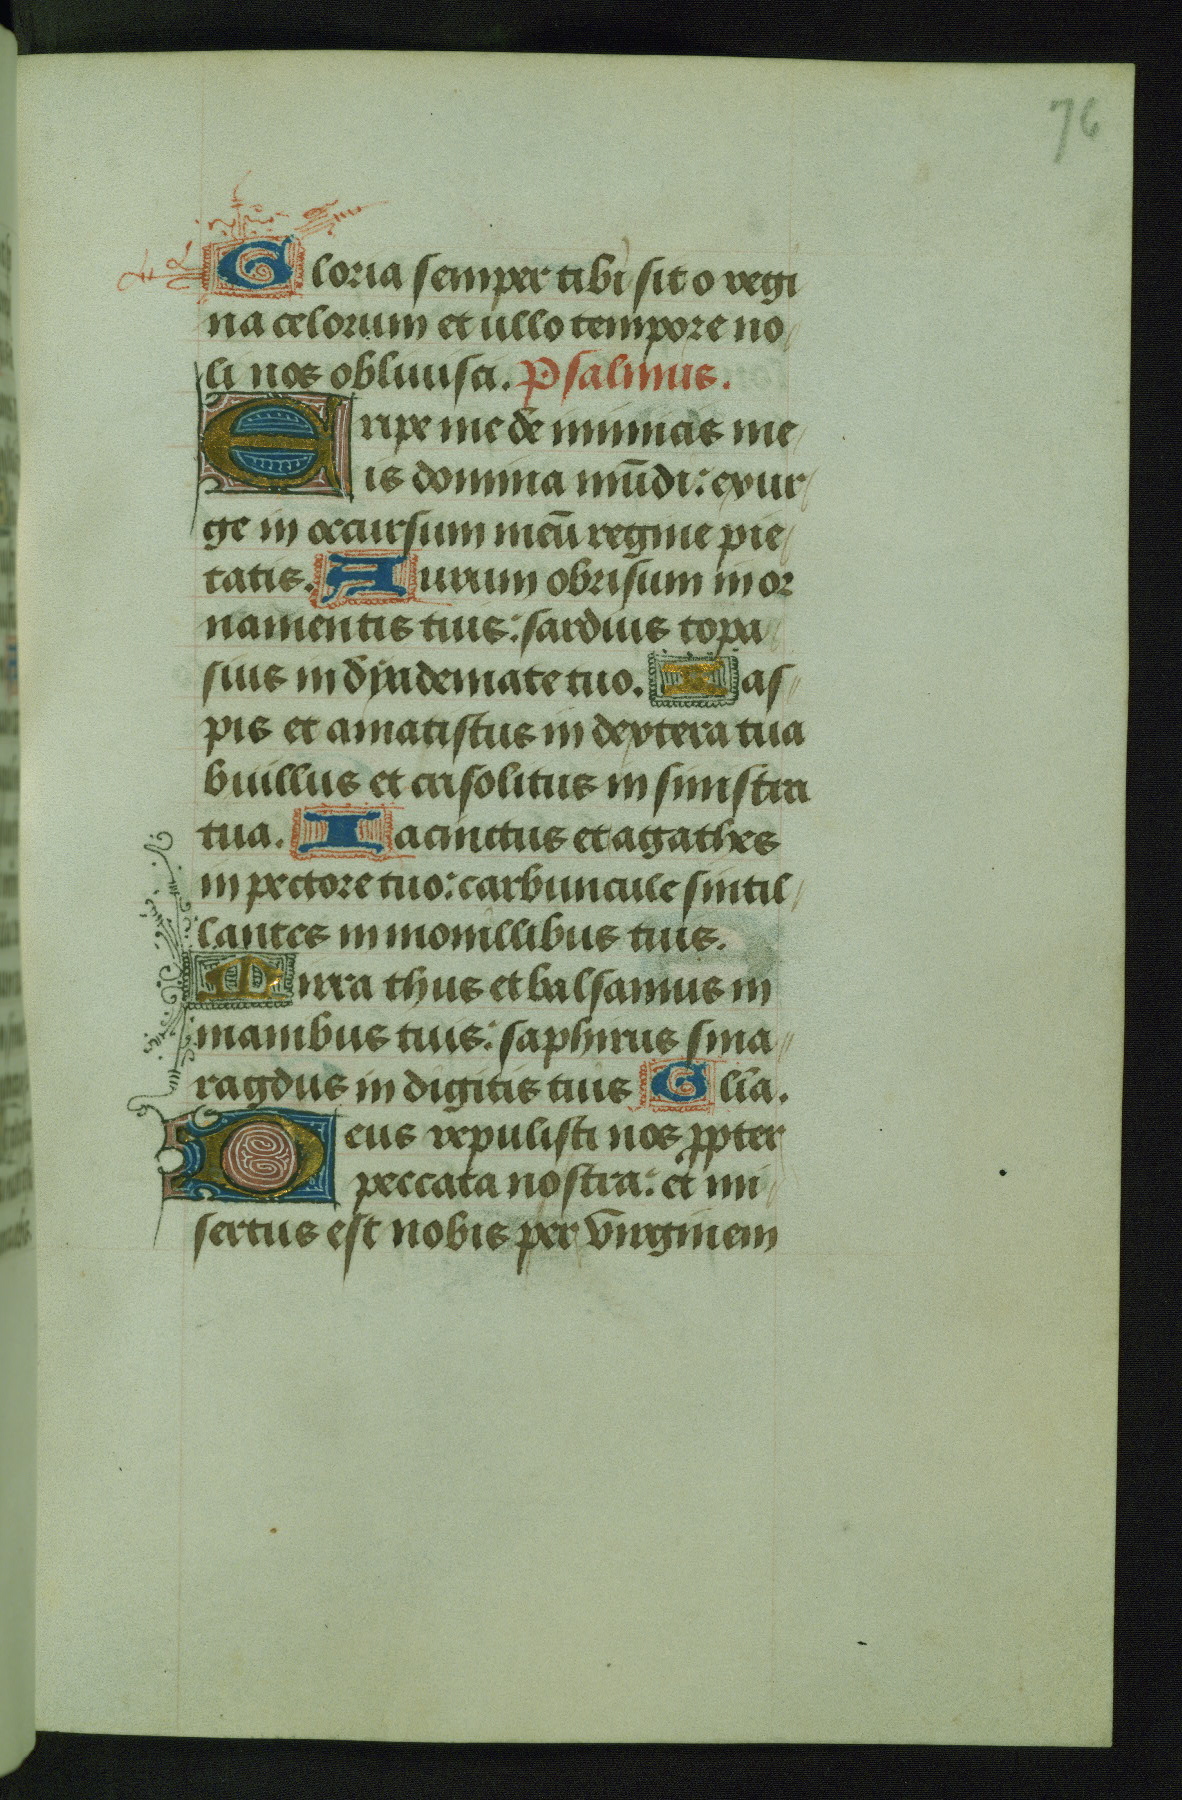 76
Gloria semper tibi sit o regi
na celorum et ullo tempore no
li nos obliuisci. Psalmus.
Eripe me de inimicis me
is domina mūdi: exur
ge in occursum meū regine pie
tatis. Aurum obrisum in or
namentis tuis: sardius topa
sius in dyademate tuo. Ias
pis et amatistus in dextera tua
birillus et crisolitus in sinistra
tua. Iacinctus et agathes
in pectore tuo: carbuncule sintil
lantes in monillibus tuis.
Mirra thus et balsamus in
manibus tuis: saphirus sma
ragdus in digitis tuis Glīa.
Deus repulisti nos ꝓpter
peccata nostra: et mi
sertus est nobis per virginem